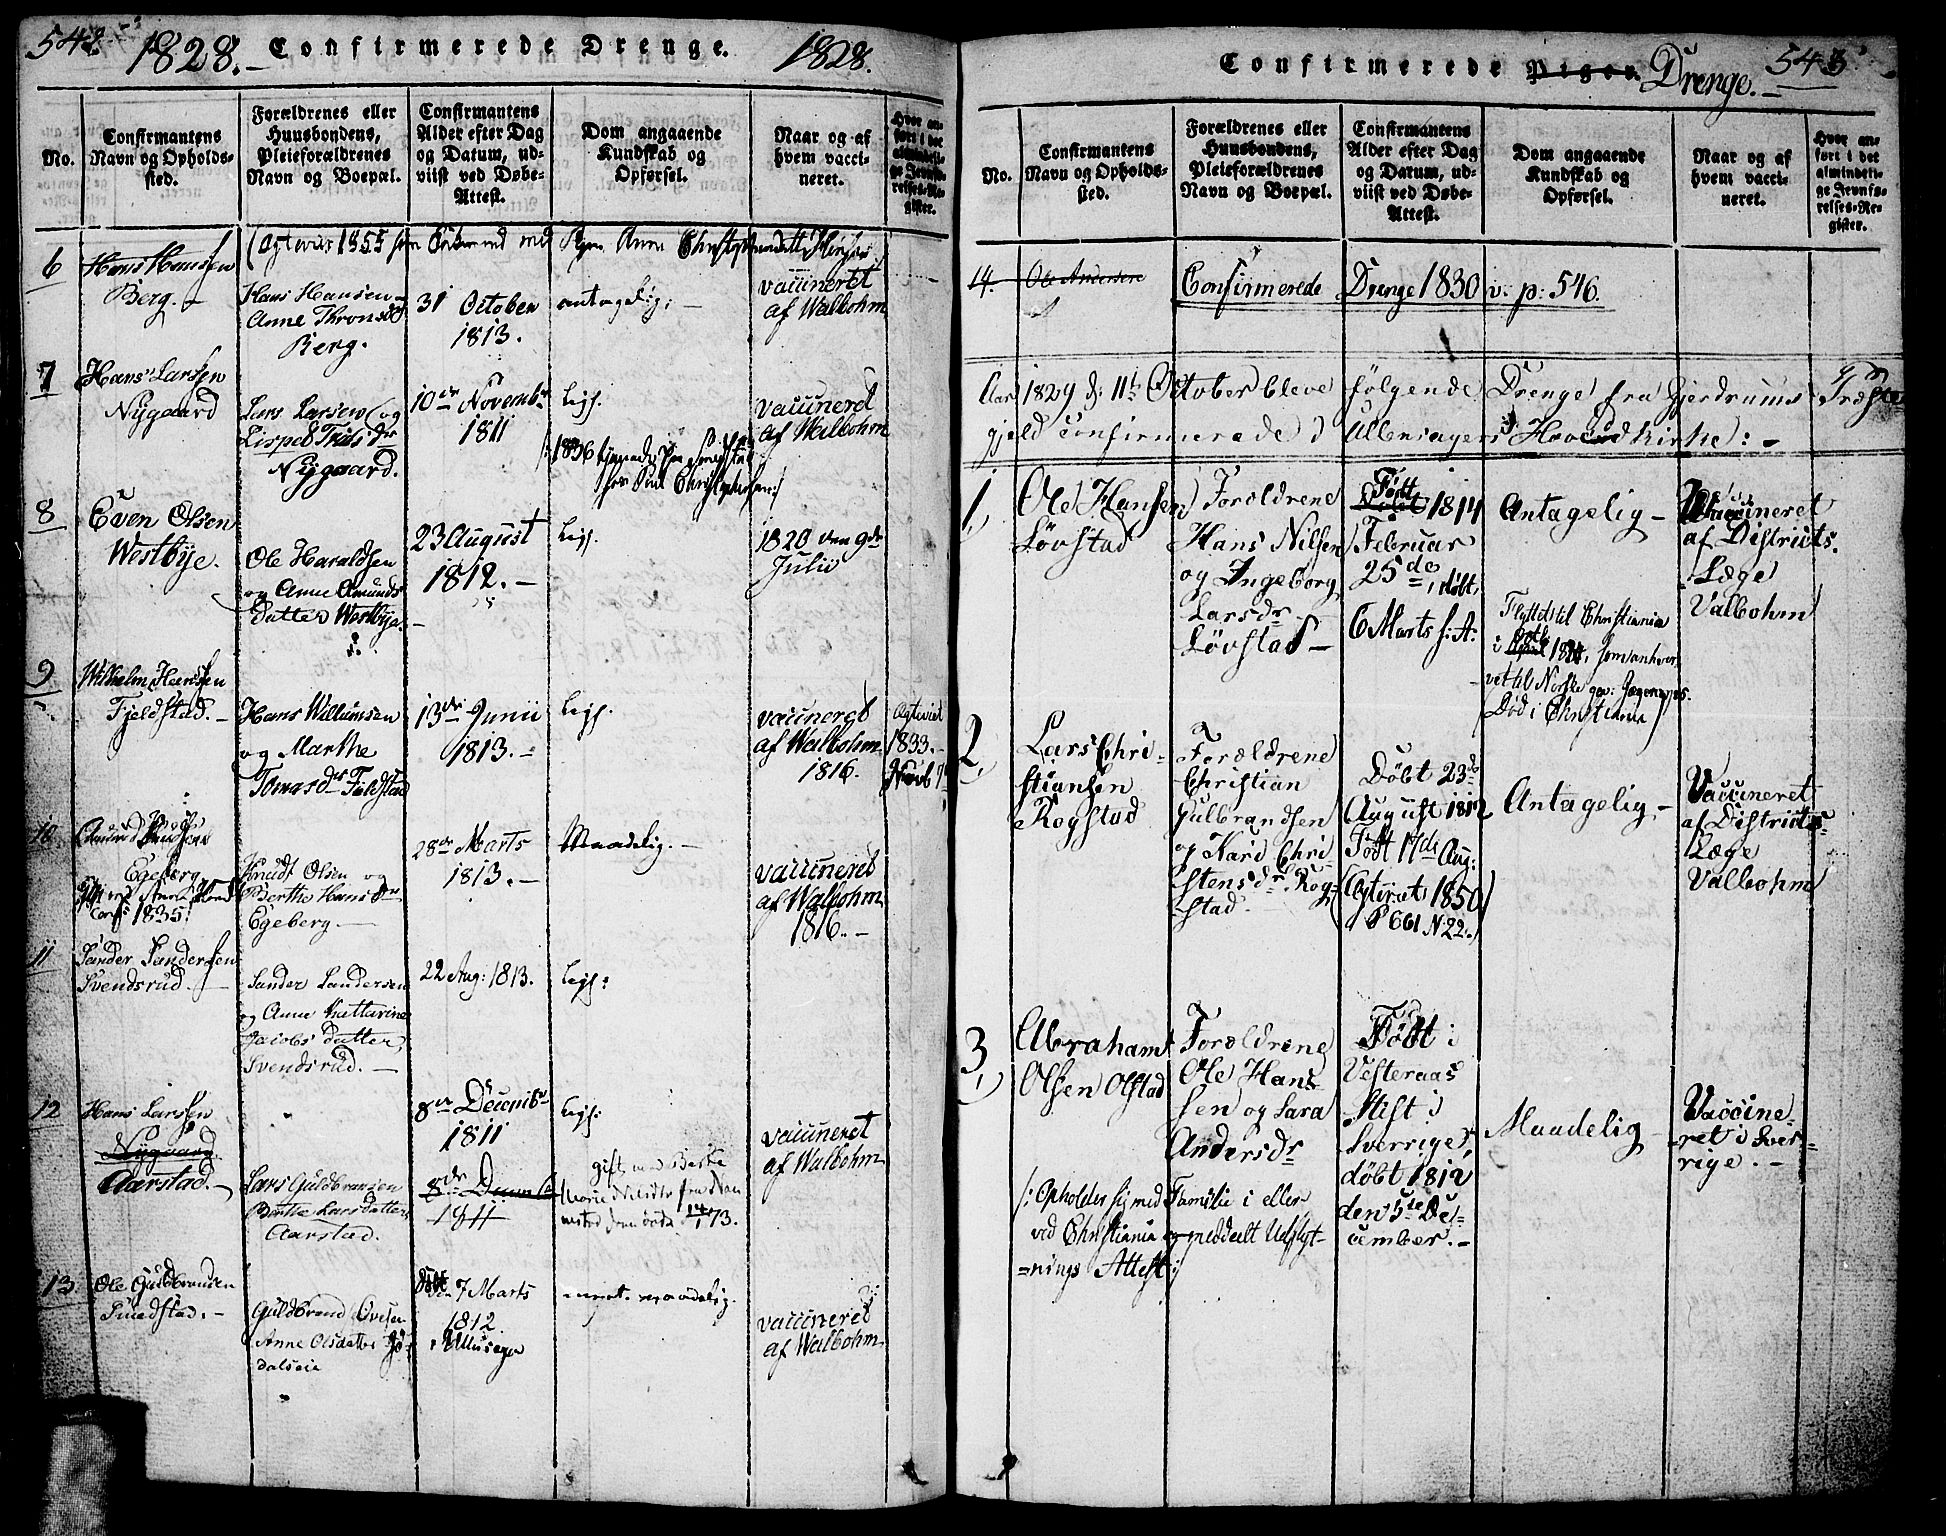 542.
1828. – Confirmerede Drenge. 1828.
No.
Confirmantens
Navn og Opholds-
sted.
Forældrenes eller
Huusbondens,
Pleieforældrenes
Navn og Boepæl.
Confirmantens
Alder efter Dag
og Datum, ud-
viist ved Døbe-
Attest.
Dom angaaende
Kundskab og
Opførsel.
Naar og af
hvem vacci-
neret.
Hvor an-
ført i det
almindeli-
ge Jevnfø-
relses-Re-
gister.
6
Hans Hansen
Berg. –
(Agteviet 1855 som Enkemand med Pigen Anne
Hans Hansen
Anne Thronsdr
Berg.
31 October
1813.
antagelig;
vaccineret
af Walbohm
7
Hans Larsen
Nygaard
Lars Larsen og
Lispet Trulsdr
Nygaard.
10de Novembr
1811
Ligs.
1836 tjenende paa Smestad
hos Poul Christophersen:/
vaccineret
af Walbohm
8
Even Olsen
Westbye.
Ole Haraldsen
og Anne Amunds
datter Westbye.
23 August
1812. –
Ligs.
1820 den 9de
Julii
9
Wilhelm Hansen
Fjeldstad. –
Hans Willumsen
og Marthe
Tomasdr Fieldstad
13de Junii
1813. –
Ligs.
vaccineret
af Walbohm
1816.
Agteviet
1833. –
10
Amund Knudsen
Egeberg
1835.
Knudt Olsen og
Berthe Hansdtr
Egeberg. –
28de Marts
1813. –
Maadelig. –
vaccineret
af Walbohm
1816. –
11
Sander Sandersen
Svendsrud. –
Sander Sandersen
og Anne Kattarine
Jacobs datter,
Svendsrud. –
22 Aug: 1813.
Ligs:
12
Hans Larsen
Nygaard.
Aarstad. –
Lars Guldbransen
Berthe Larsdatter
Aarstad.
8de Decembr
1811
8de Decem
1811
Ligs.
gift med Berthe
Marie Nilsdtr fra Nan
nestad
vaccineret
af Walbohm
13
Ole Guldbrandsen
Smedstad. –
Guldbrand Evensen
Anne Olsdatter
dalseie
Døbt
den 7 Marts
1812
i Ullensager
meget maadelig.
vaccineret
af Walbohm
Confirmerede Piger. Drenge. – 543
No.
Confirmantens
Navn og Opholds-
sted.
Forældrenes eller
Huusbondens,
Pleieforældrenes
Navn og Boepæl.
Confirmantens
Alder efter Dag
og Datum, ud-
viist ved Døbe-
Attest.
Dom angaaende
Kundskab og
Opførsel.
Naar og af
hvem vacci-
neret.
Hvor an-
ført i det
almindeli-
ge Jevnfø-
relses-Re-
gister.
14. Ole Andersen
Confirmerede Drenge 1830 v: p: 546.
Aar 1829 d: 11te October bleve følgende Drenge fra Gjerdrums Præste
gjeld confirmerede i Ullensagers Hovedkirke: –
1,
Ole Hansen
Løvstad
Forældrene
Hans Nilsen
og Ingeborg
Larsdr
Løvstad –
Født
1814
Februar
25de, døbt,
6 Marts s: A:
Antagelig –
Flyttet til Christiania
i Octb
1834, som anhver
vet til Norske gev: Jægercorps.
Død i Christiania
Vaccineret
af Districts.
Læge
Valbohm
2,
Lars Chri-
stiansen
Rogstad
Forældrene
Christian
Gulbrandsen
og Kari Chri
stensdr. Rog-
stad.
Døbt 23de
August 1812
Født 17de Aug:
(Agteviet 1850
P 661 N: 22.)
Antagelig –
Vaccineret
af Districts-
Læge
Valbohm
3,
Abraham
Olsen Olstad
Forældrene
Ole Han-
sen og Sara
Andersdr
Født i
Vesteraas
Stift i
Sverrige,
døbt 1812
den 5te De-
cember. –
Maadelig –
Vaccine-
ret i Sver-
rige. –
/: Opholder sig med Familie i eller
ved Christiania og meddeelt Udflyt-
nings Attest :/